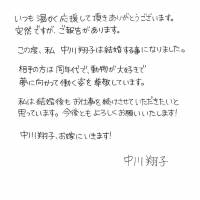 いつも温かく応援して頂きありがとうございます。
突然ですが、ご報告があります。
この度、私 中川翔子は結婚する事になりました。
相手の方は同年代で、動物が大好きで
夢に向かって働く姿を尊敬しています。
私は結婚後もお仕事を続けさせていただきたいと
思っています。今後ともよろしくお願いいたします!
中川翔子、お嫁にいきます!
中川 翔子